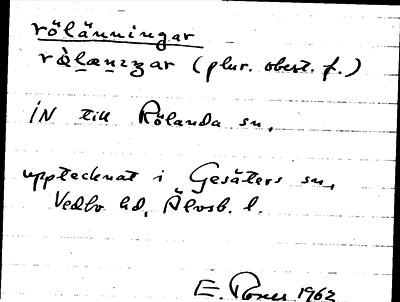 rölänningar
rò̀lænıŋar (plur. obest. f.)
IN till Rölanda sn,
upptecknat i Gesäters sn,
Vedbo hd, Älvsb. l.
E. 1962